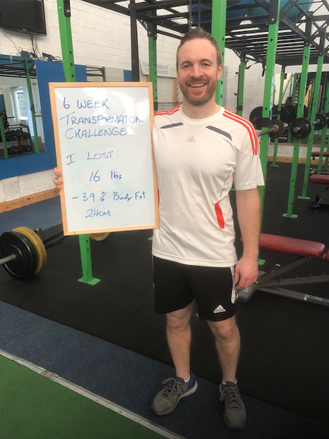 6 WEEK
TRANSFORMATION
CHALLENGE
I LOST:
16 lbs
- 3.9 % Body Fat
24cm
adidas